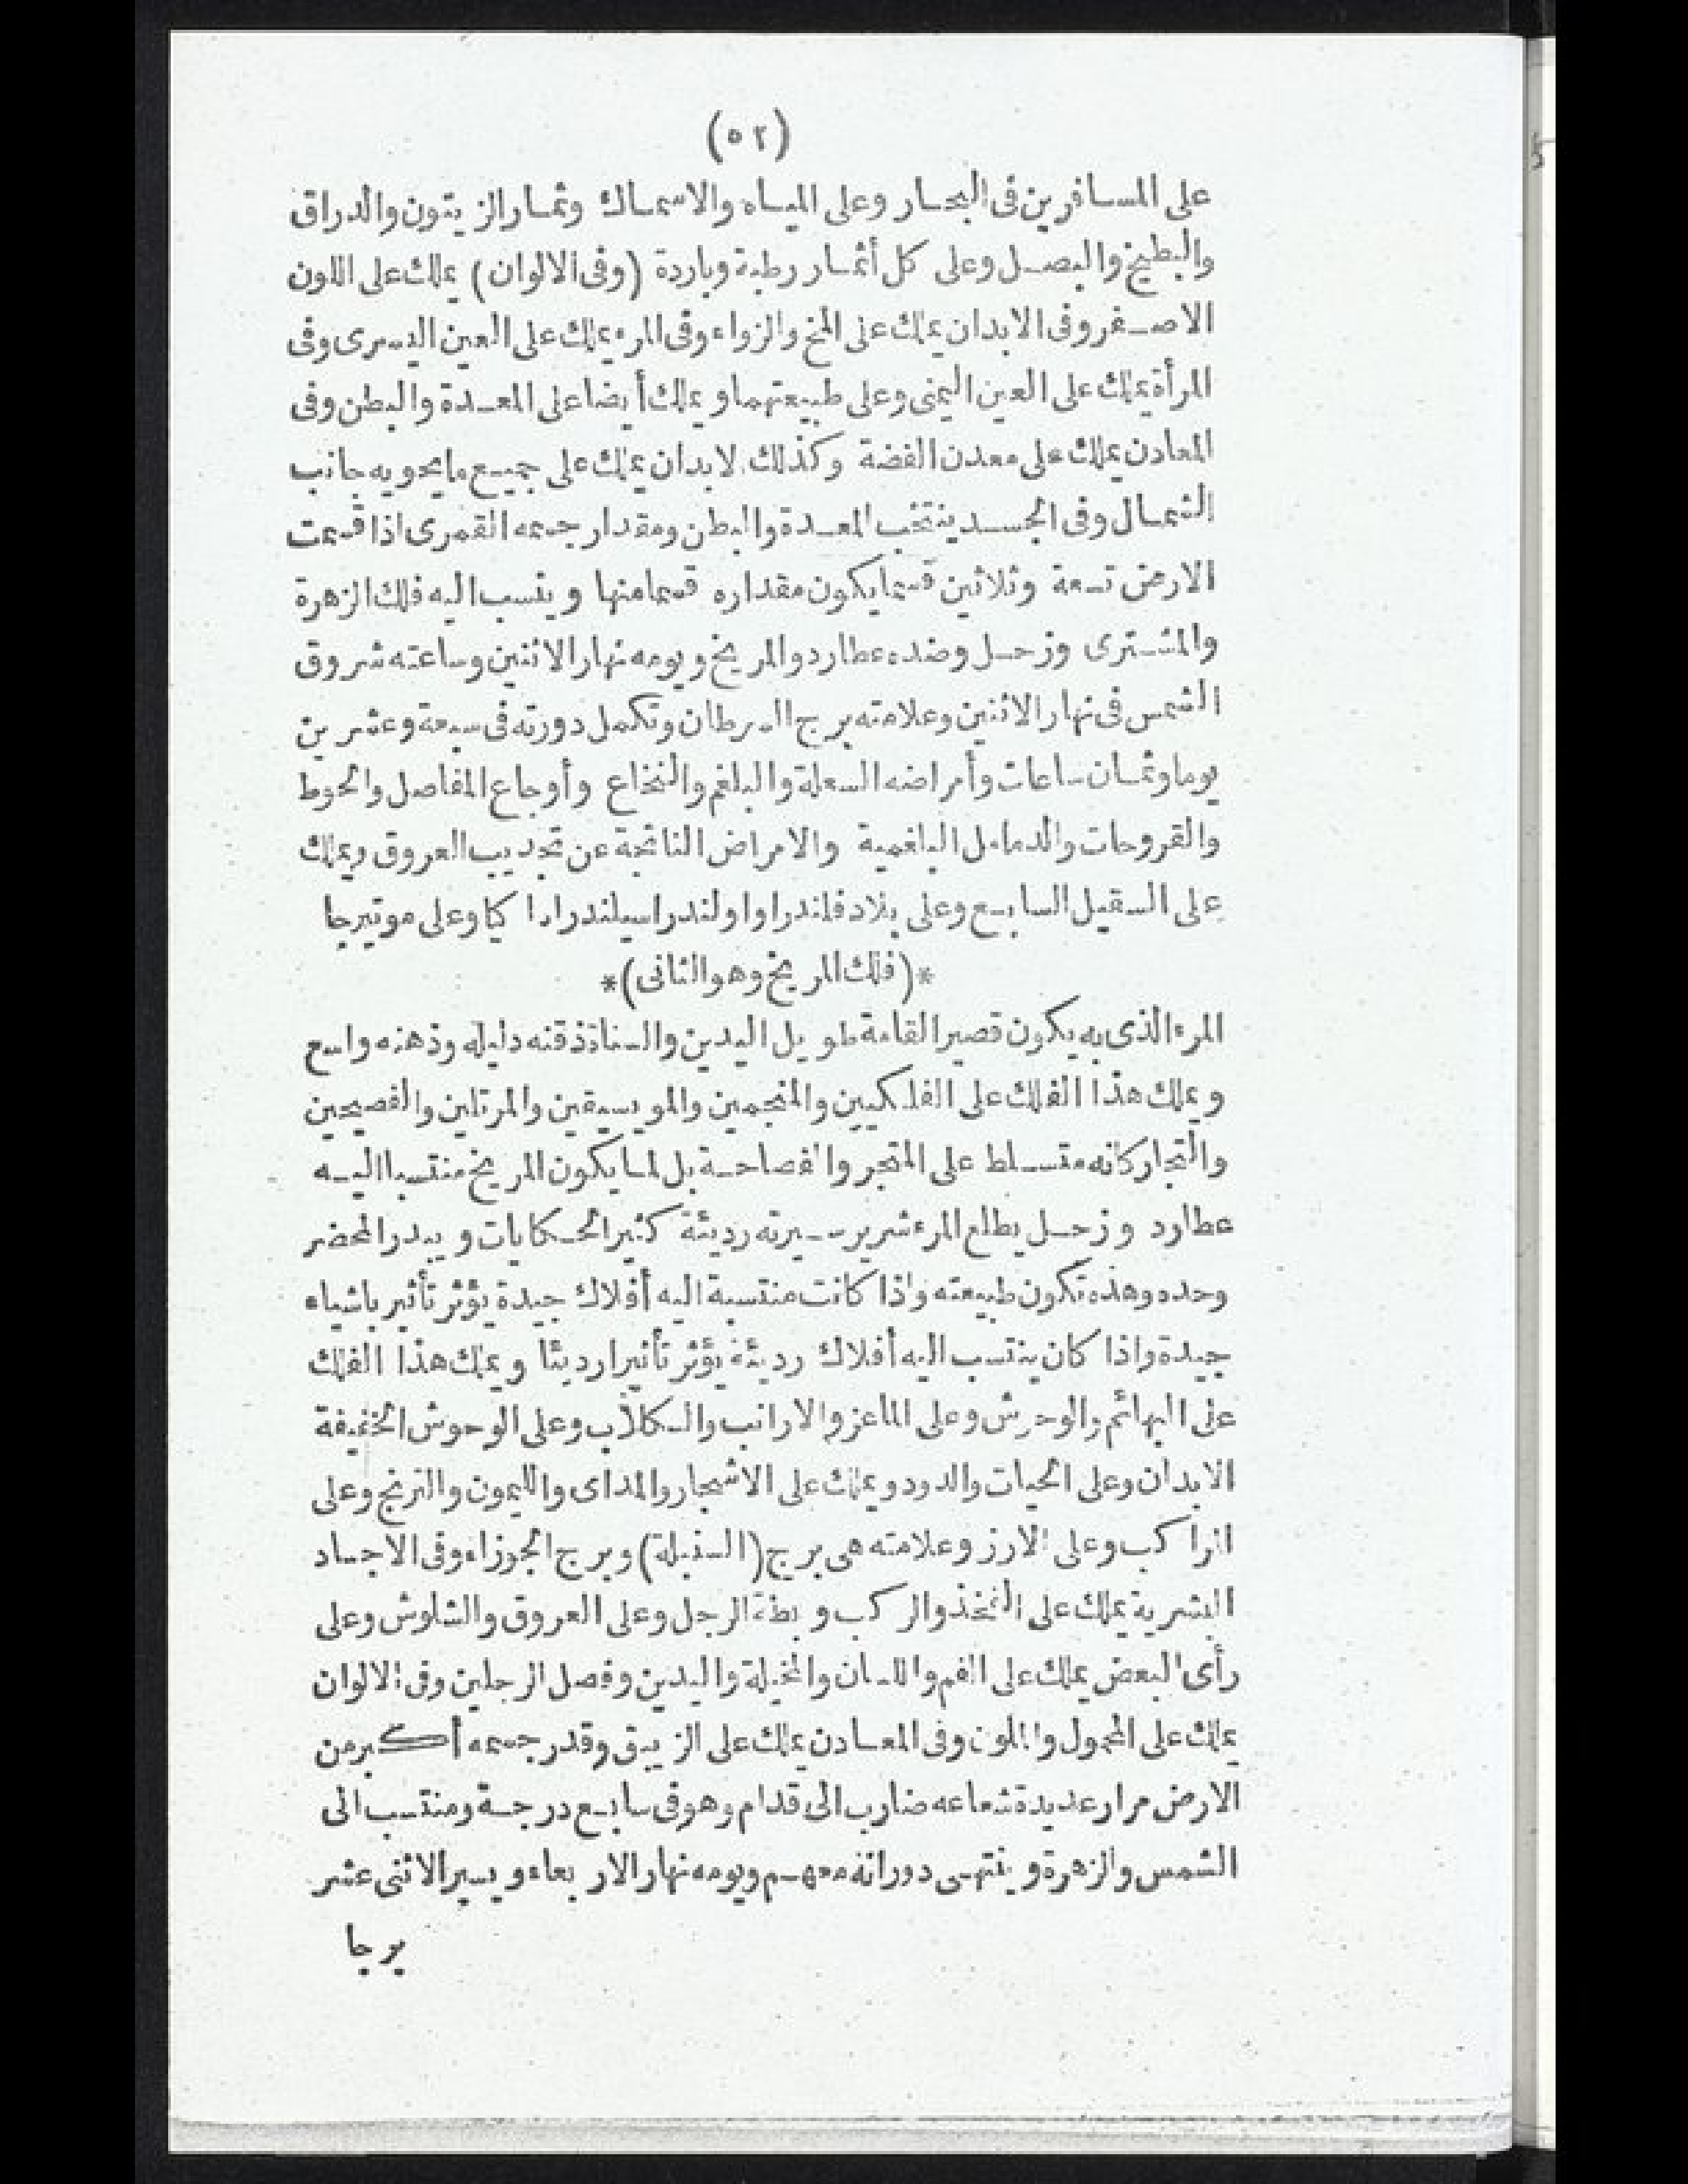 (٥٢)
على المسافرين فى البحار وعلى المياه والاسماك وثمار الزيتون والدراق
والبطيخ والبصل وعلى كل أثمار رطبة وباردة (وفى الالوان) يملك على اللون
الاصفر وفى الابدان يملك على المخ والزواء وفى المرء يملك على العين اليسرى وفى
المرأة يملك على العين اليمنى وعلى طبيعتهما ويملك أيضا على المعدة والبطن وفى
المعادن يملك على معدن الفضة وكذلك الابدان يملك على جميع ما يحويه جانب
الشمال وفى الجسد ينتخب المعدة والبطن ومقدار جسمه القمرى اذا قسمت
الارض تسعة وثلاثين قسما يكون مقداره قسما منها وينسب اليه فلك الزهرة
والمشترى وزحل وضده عطارد والمريخ ويومه نهار الاثنين وساعته شروق
الشمس فى نهار الاثنين وعلامته برج السرطان وتكمل دورته فى سبعة وعشرين
يوما وثمان ساعات وأمراضه السعلة والبلغم والنخاع وأوجاع المفاصل والحوط
والقروحات والدمامل البلغمية والامراض الناتجة عن تجديب العروق ويملك
على السقيل السابع وعلى بلاد فلندرا واولندرا سيلندرا دا كيا وعلى موتيرجا
*(فلك المريخ وهو الثانى)*
المرء الذى به يكون قصير القامة طويل اليدين والسناة ذقنه دليله وذهنه واسع
ويملك هذا الفلك على الفلكيين والمنجمين والمويسيقين والمرتلين والفصيحين
والتجار كانه متسلط على المتجر والفصاحة بل لما يكون المريخ منتسبا اليه
عطارد وزحل يطلع المرء شرير سيرته رديئة كثير الحكايات ويبدر المحضر
وحده وهذه تكون طبيعته واذا كانت منتسبة اليه أفلاك جيدة يؤثر تأثير باشياء
جيدة واذا كان ينتسب اليه أفلاك رديئة يؤثر تأثيرا رديئا ويملك هذا الفلك
على البهائم والوحوش وعلى الماعز والارانب والكلاب وعلى الوحوش الخفيفة
الابدان وعلى الحيات والدود ويملك على الاشجار والمداى والليمون والترنج وعلى
الراكب وعلى الارز وعلامته هى برج (السنبلة) وبرج الجوزاء وفى الاجساد
البشرية يملك على الفخذ والركب وبطة الرجل وعلى العروق والشلوش وعلى
رأى البعض يملك على الفم واللسان والمخيلة واليدين وفصل الرجلين وفى الالوان
يملك على المحمول والملون وفى المعادن يملك على الزيبق وقدر جسمه أكبر من
الارض مرار عديدة شعاعه ضارب الى قدام وهو فى سابع درجة ومنتسب الى
الشمس والزهرة وينتهى دورانه معهم ويومه نهار الاربعاء ويسير الاثنى عشر
برجا